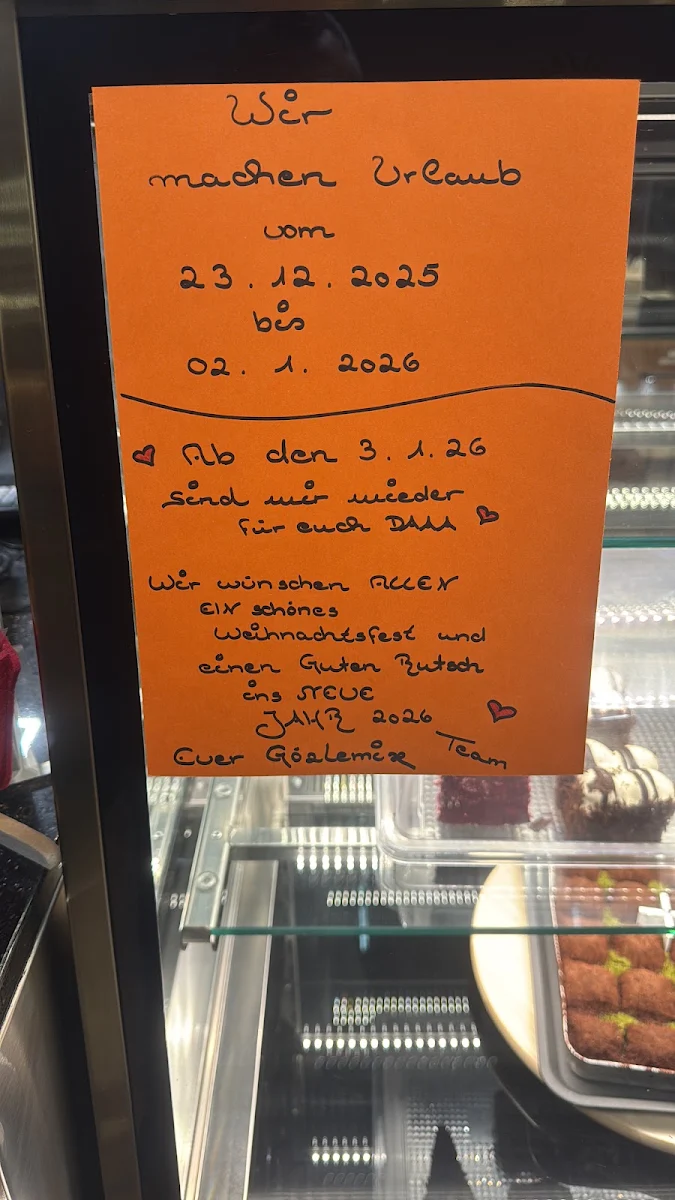 Wir
machen Urlaub
vom
23.12.2025
bis
02. 1. 2026
Ab den 3.1.26
sind wir wieder
für euch DAAA
Wir wünschen ALLEN
EIN schönes
Weihnachtsfest und
einen Guten Rutsch
ins NEUE
JAHR 2026
Euer Gözlemix Team